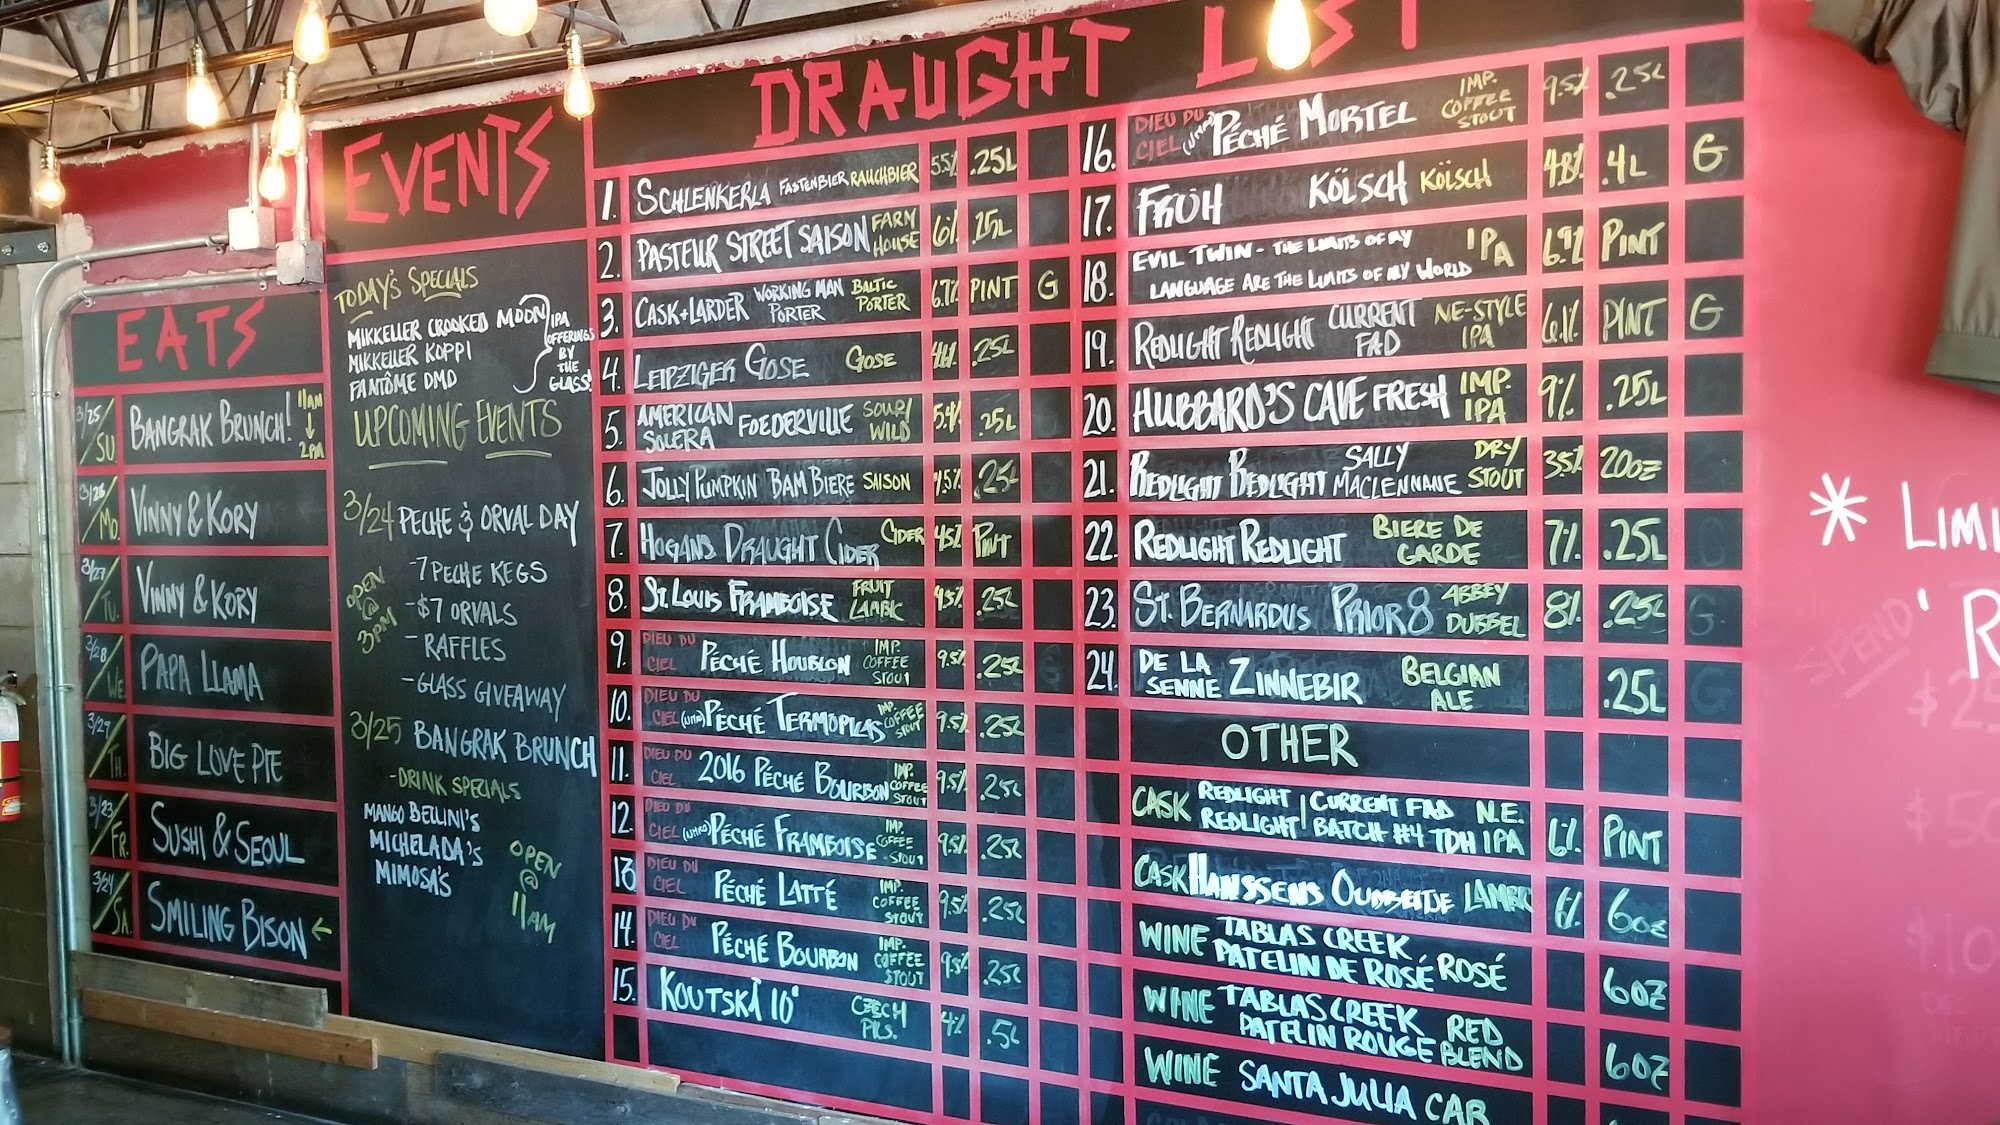 EATS
3/25 SU BANGRAK BRUNCH! 11AM ↓ 2PM
3/26 MO. VINNY & KORY
3/27 TU. VINNY & KORY
3/28 WE PAPA LLAMA
3/29 TH. BIG LOVE PIE
3/23 FR. SUSHI & SEOUL
3/24 SA. SMILING BISON ←
EVENTS
TODAY'S SPECIALS
MIKKELLER CROOKED MOON
MIKKELLER KOPPI
FANTÔME DMD
IPA
OFFERINGS
BY
THE
GLASS!
UPCOMING EVENTS
3/24 PECHE & ORVAL DAY
OPEN
@
3PM
-7 PECHE KEGS
-$7 ORVALS
- RAFFLES
-GLASS GIVEAWAY
3/25 BANGRAK BRUNCH
-DRINK SPECIALS
MANGO BELLINI'S
MICHELADA'S
MIMOSA'S
OPEN
@
11AM
DRAUGHT LIST
1. SCHLENKERLA FASTENBIER RAUCHBIER 5.5% .25L
2. PASTEUR STREET SAISON FARM HOUSE 6% .25L
3. CASK+LARDER WORKING MAN PORTER BALTIC PORTER 6.7% PINT G
4. LEIPZIGER GOSE GOSE .25L
5. AMERICAN SOLERA FOEDERVILLE SOUR/ WILD 5.4% .25L
6. JOLLY PUMPKIN BAM BIERE SAISON 4.5% .25L
7. HOGANS DRAUGHT CIDER CIDER 4.5% PINT
8. ST. LOUIS FRAMBOISE FRUIT LAMBIC 4.5% .25L
9. DIEU DU CIEL PÉCHÉ HOUBLON IMP. COFFEE STOUT 9.5% .25L
10. DIEU DU CIEL (NITRO) PÉCHÉ TERMOPILAS IMP. COFFEE STOUT 9.5% .25L
11. DIEU DU CIEL 2016 PÉCHÉ BOURBON IMP. COFFEE STOUT 9.5% .25L
12. DIEU DU CIEL (NITRO) PÉCHÉ FRAMBOISE IMP. COFFEE STOUT 9.5% .25L
13. DIEU DU CIEL PÉCHÉ LATTÉ IMP. COFFEE STOUT 9.5% .25L
14. DIEU DU CIEL PÉCHÉ BOURBON IMP. COFFEE STOUT 9.5% .25L
15. KOUTSKÁ 10° CZECH PILS. 4% .5L
16. DIEU DU CIEL (NITRO) PÉCHÉ MORTEL IMP. COFFEE STOUT 9.5% .25L
17. FRÜH KÖLSCH KÖLSCH 4.8% .4L G
18. EVIL TWIN - THE LIMITS OF MY LANGUAGE ARE THE LIMITS OF MY WORLD IPA 6.9% PINT
19. REDLIGHT REDLIGHT CURRENT FAD NE-STYLE IPA 6.1% PINT G
20. HUBBARD'S CAVE FRESH IMP. IPA 9% .25L
21. REDLIGHT REDLIGHT SALLY MACLENNANE DRY STOUT 3.5% 20OZ
22. REDLIGHT REDLIGHT BIERE DE GARDE 7% .25L
23. ST. BERNARDUS PRIOR 8 ABBEY DUBBEL 8% .25L G
24. DE LA SENNE ZINNEBIR BELGIAN ALE .25L G
OTHER
CASK REDLIGHT REDLIGHT | CURRENT FAD BATCH #4 TDH N.E. IPA 6% PINT
CASK HANSSENS OUDBEITJE LAMBIC 6% 6OZ
WINE TABLAS CREEK PATELIN DE ROSÉ ROSÉ 6OZ
WINE TABLAS CREEK PATELIN ROUGE RED BLEND 6OZ
WINE SANTA JULIA CAB
* LIMI
SPEND
$25
$50
$10